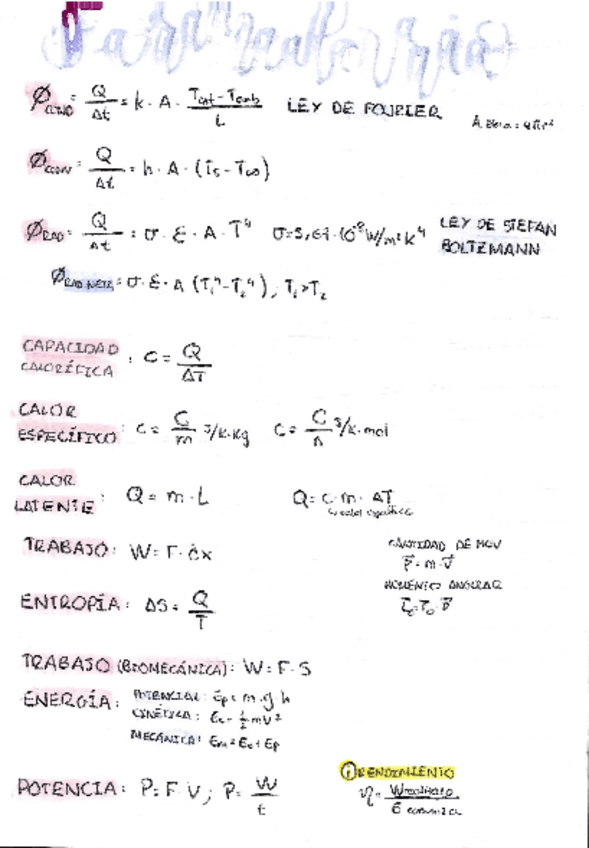 Ø_COND = Q/Δt = k · A · (T_int - T_amb)/L LEY DE FOURIER
Ø_CONV = Q/Δt = h · A · (T_S - T_∞)
Ø_RAD = Q/Δt = σ · ε · A · T⁴ σ = 5,67 · 10⁻⁸ W/m²K⁴ LEY DE STEFAN
BOLTZMANN
Ø_RAD NETA = σ · ε · A (T₁⁴ - T₂⁴), T₁ > T₂
CAPACIDAD
CALORÍFICA : C = Q/ΔT
CALOR
ESPECÍFICO : c = C/m J/K·Kg c = C/n J/K·mol
CALOR
LATENTE : Q = m · L Q = c · m · ΔT
TRABAJO: W = F · Δx
CANTIDAD DE MOV
p⃗ = m · v⃗
MOMENTO ANGULAR
ENTROPÍA: ΔS = Q/T
TRABAJO (BIOMECÁNICA): W = F · S
ENERGÍA: POTENCIAL: Ep = m · g · h
CINÉTICA: Ec = ½ mv²
MECÁNICA: Em = Ec + Ep
POTENCIA: P = F · V; P = W/t
RENDIMIENTO